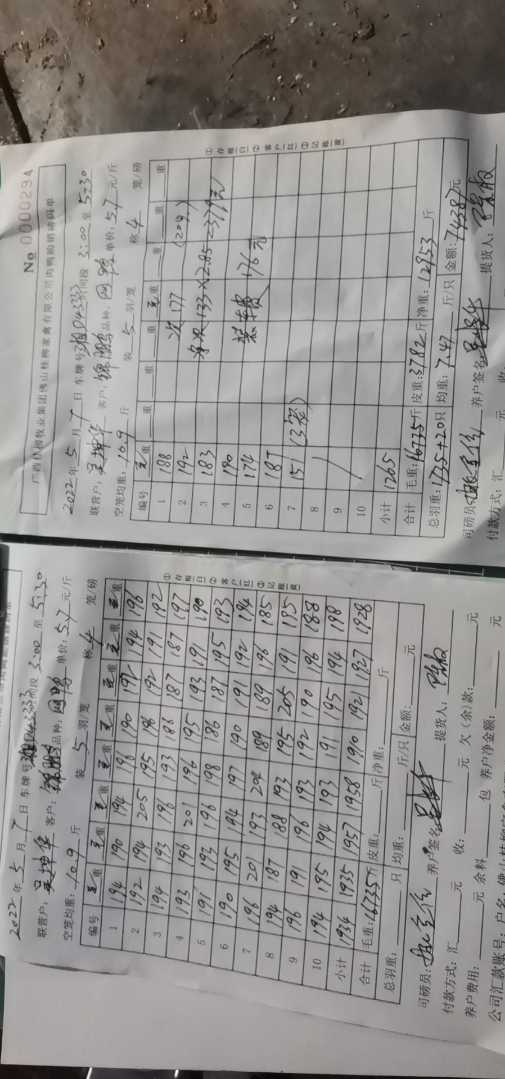 广西桂柳牧业集团佛山桂柳家禽有限公司肉鸭购销磅码单
No 0000294
2022年5月7日 车牌号 时间段 3:00 至 5:30
联营户: 客户: 品种: 单价: 5.7 元/斤
空笼均重: 10.9 斤 装 5 羽/笼 称 4 笼/磅
编号 毛重 重 重 毛重 重 重 重
1 188 次 177
2 192 (20只)
3 183 净次 133×2.85=379元
4 190
5 174 装车费 176元
6 187
7 151 (3笼)
8
9
10
小计 1265
合计 毛重: 16735 斤 皮重: 3782 斤 净重: 12953 斤
总羽重: 1735+20 只 均重: 7.47 斤/只 金额: 74387 元
司磅员: 养户签名: 提货人:
付款方式: 汇 元 收
①存根(白) ②客户(红) ③记账(黄)
2022年5月7日 车牌号 时间段 3:00 至 5:30
联营户: 客户: 品种: 单价: 5.7 元/斤
空笼均重: 10.9 斤 装 5 羽/笼 称 4 笼/磅
编号 毛重 毛重 毛重 毛重 毛重 毛重 毛重 毛重
1 194 190 194 196 190 192 194 196
2 192 194 205 195 196 192 191 192
3 194 193 196 193 188 187 187 197
4 193 196 201 196 195 193 191 190
5 191 193 196 198 186 187 195 193
6 190 195 194 197 190 191 192 194
7 196 201 193 208 189 189 196 185
8 194 187 188 193 195 205 191 185
9 196 191 196 193 192 190 196 188
10 194 195 194 193 191 195 194 198
小计 1934 1935 1957 1958 1910 1921 1927 1928
合计 毛重: 16735 斤 皮重: 斤 净重: 斤
总羽重: 只 均重: 斤/只 金额: 元
司磅员: 养户签名: 提货人:
付款方式: 汇 元 收: 元 欠(余)款: 元
养户费用: 元 余料 包 养户净金额: 元
公司汇款账号: 户名:
①存根(白) ②客户(红) ③记账(黄)